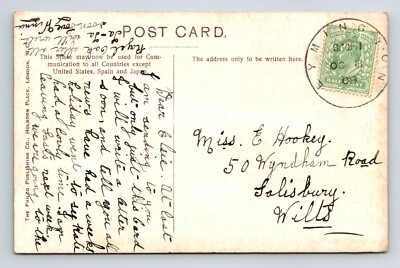 POST CARD.
This Space may now be used for Communication to all Countries except
United States, Spain and Japan.
The address only to be written here.
THE PHILCO PUBLISHING CO., HOLBORN PLACE, LONDON.
LYMINGTON
08
HALFPENNY
Miss. E Hookey.
50 Wyndham Road
Salisbury.
Wilts
Dear Elsie. At last
I am sending to you
but only just this Card
I will write a letter
soon, and tell you all
news have had a weeks
holiday went to see
had a lovely time I am
leaving next week
we are going to the
Royal
soon.
Love